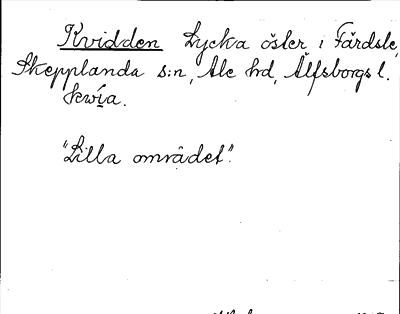 Kvidden Lycka öster i Färdsle,
Skepplanda s:n, Ale hd, Älfsborgs l.
kwía.
"Lilla området".